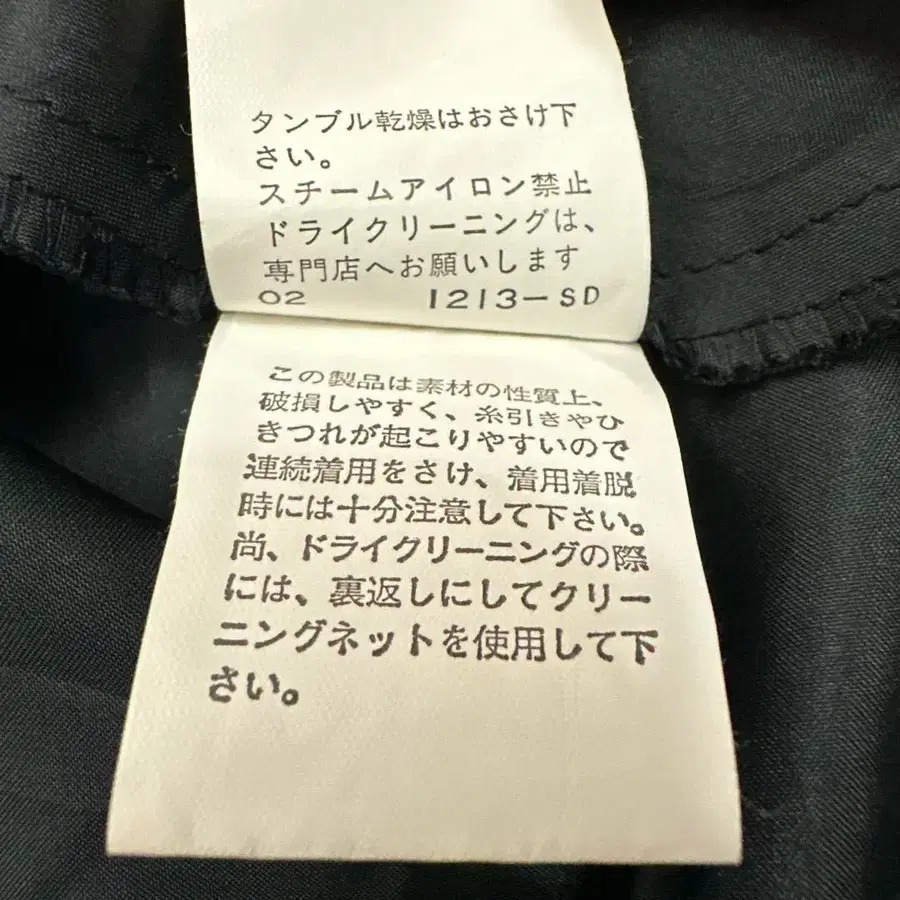 タンブル乾燥はおさけ下
さい。
スチームアイロン禁止
ドライクリーニングは、
専門店へお願いします
02 1213-SD
この製品は素材の性質上、
破損しやすく、糸引きやひ
きつれが起こりやすいので
連続着用をさけ、着用着脱
時には十分注意して下さい。
尚、ドライクリーニングの際
には、裏返しにしてクリー
ニングネットを使用して下
さい。